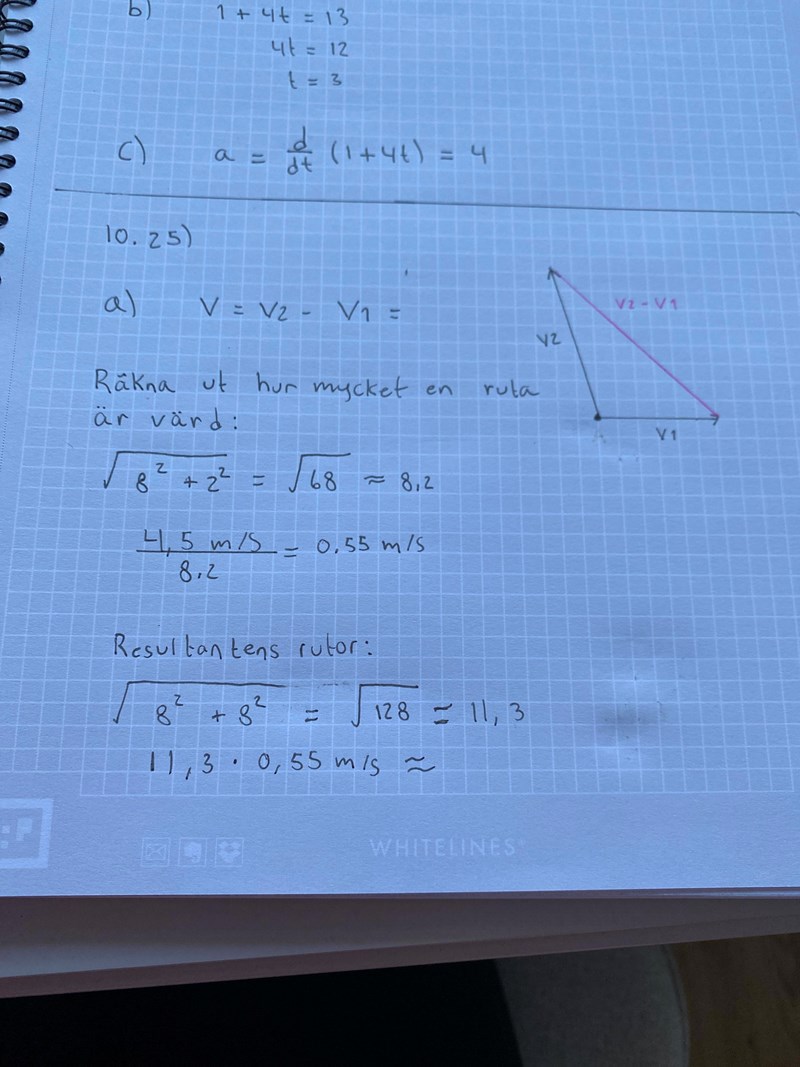 b) 1 + 4t = 13
4t = 12
t = 3
c) a = d/dt (1+4t) = 4
10.25)
a) V = V2 - V1 =
V2 - V1
V2
V1
Räkna ut hur mycket en ruta
är värd:
√(8² + 2²) = √68 ≈ 8,2
4,5 m/s / 8,2 = 0,55 m/s
Resultantens rutor:
√(8² + 8²) = √128 = 11,3
11,3 · 0,55 m/s ≈
WHITELINES®